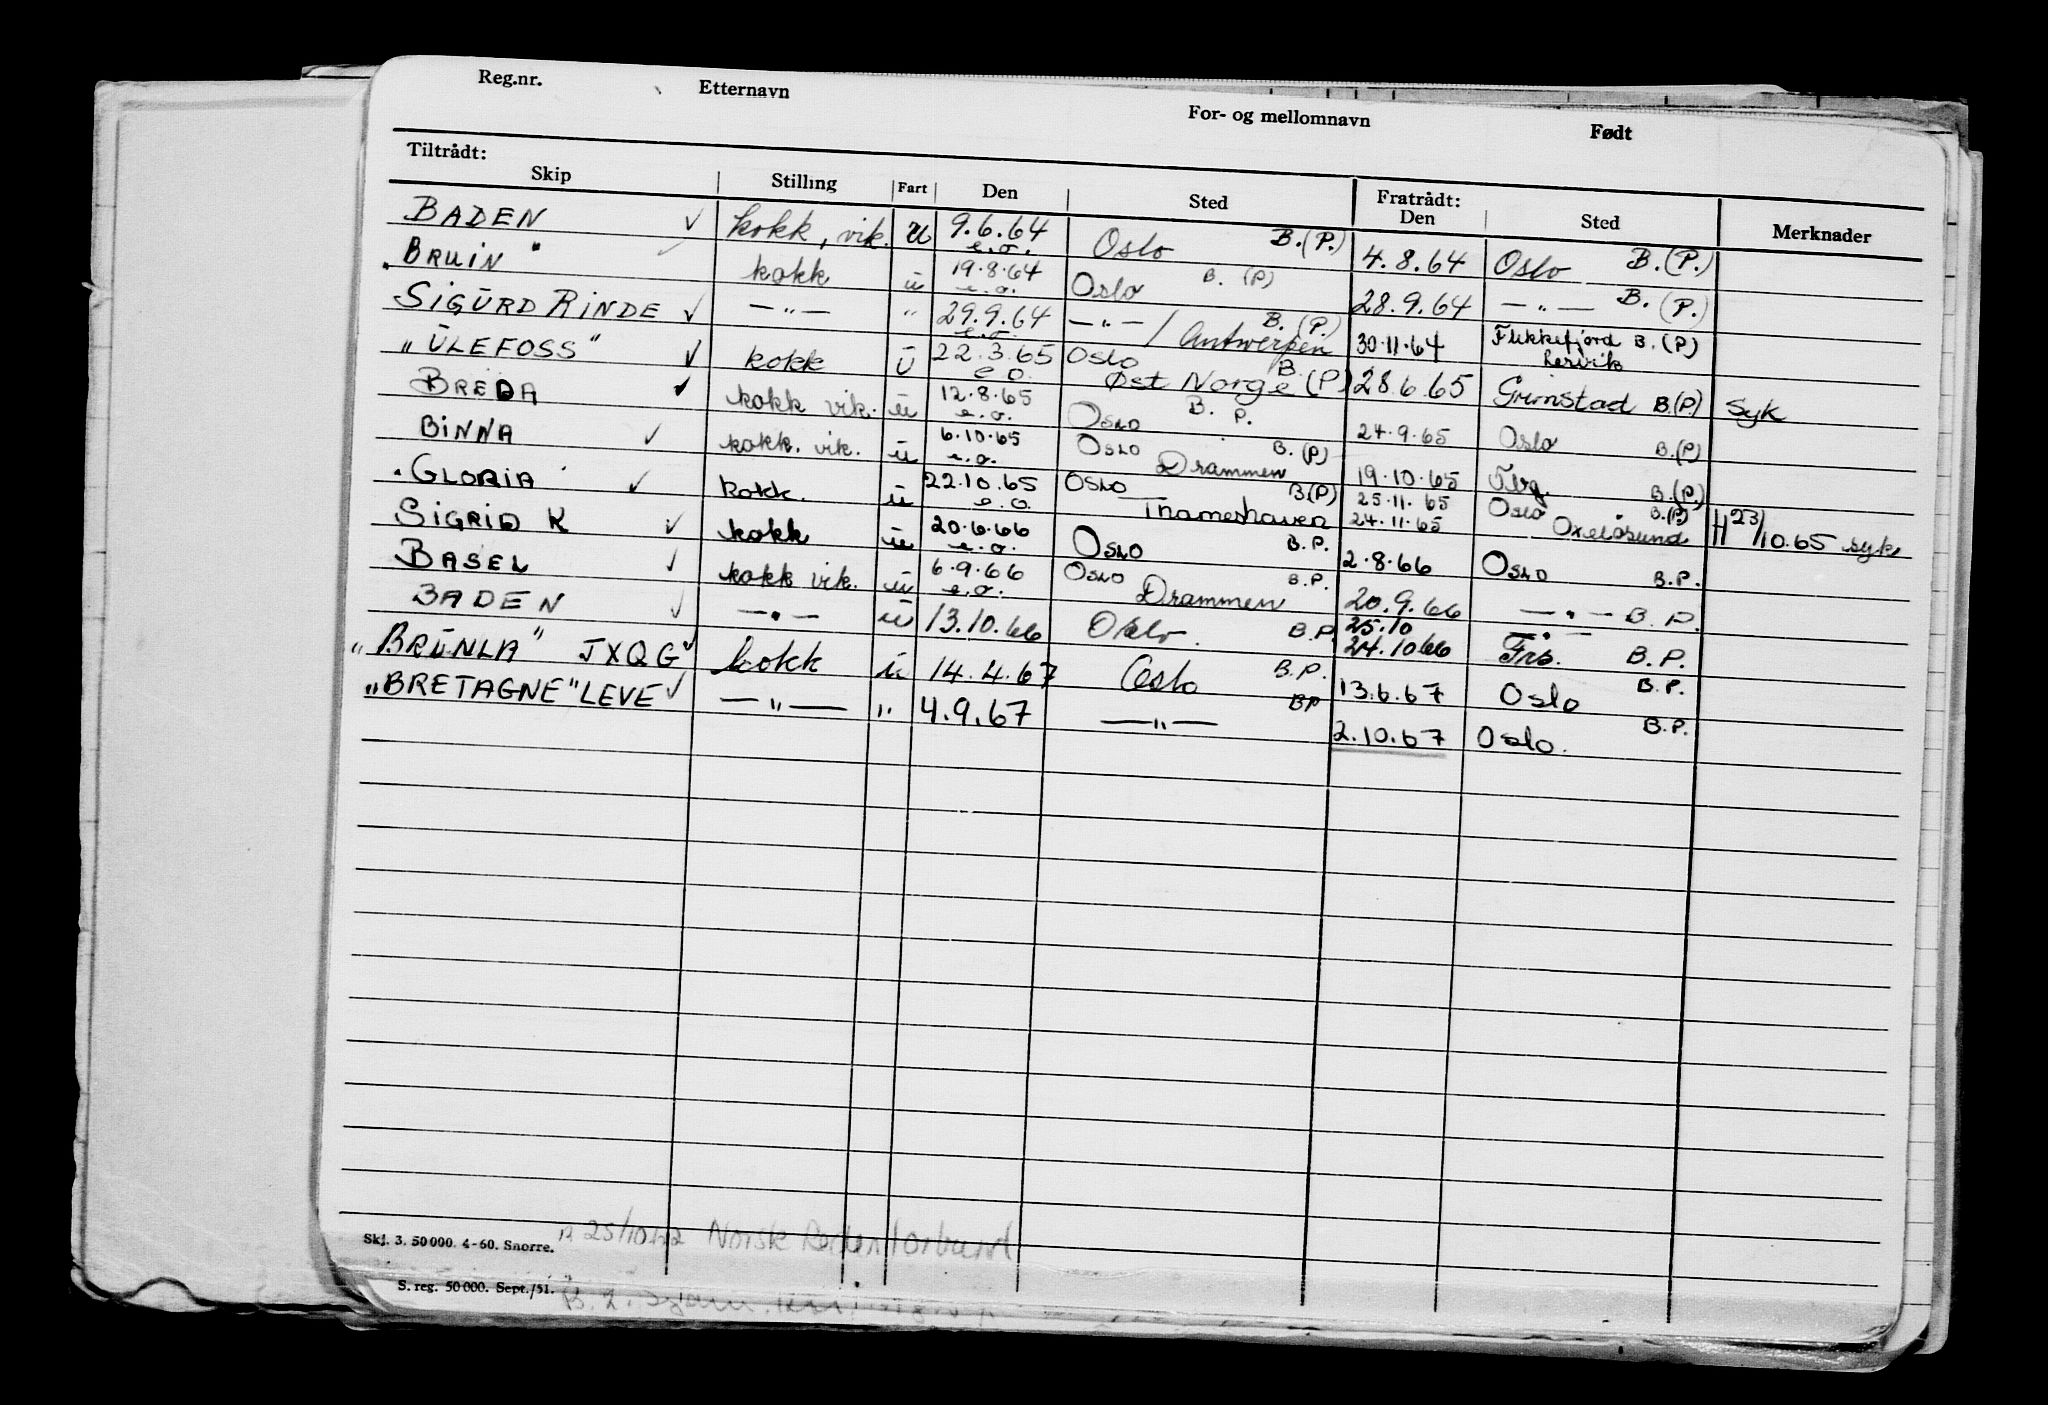 Reg.nr. Etternavn For- og mellomnavn Født
Tiltrådt: Fratrådt:
Skip Stilling Fart Den Sted Den Sted Merknader
BADEN ✓ kokk, vik. u 9.6.64 e.o. Oslo B.(P.) 4.8.64 Oslo B.(P.)
"BRUIN" ✓ kokk u 19.8.64 e.o. Oslo B.(P) 28.9.64 —„— B.(P.)
SIGURD RINDE ✓ —„— „ 29.9.64 e.o. —„— / Antwerpen B.(P.) 30.11.64 Flekkefjord B.(P)
„ULEFOSS" ✓ kokk U 22.3.65 e o. Oslo B. Øst Norge (P) 28.6.65 Grimstad B.(P) Syk
BREDA ✓ kokk vik. u 12.8.65 e.o. Oslo B. P. 24.9.65 Oslo B.(P)
BINNA ✓ kokk. vik. u 6.10.65 e.o. Oslo Drammen B.(P) 19.10.65 B.(P.)
GLORIA ✓ kokk. u 22.10.65 e.o. Oslo B(P) Thameshaven 25.11.65 Oslo B.(P)
24.11.65 Oxeløsund H 23/10.65 syk
SIGRID K ✓ kokk u 20.6.66 e.o. Oslo B.P. 2.8.66 Oslo B.P.
BASEL ✓ kokk vik. u 6.9.66 e.o. Oslo B.P. Drammen 20.9.66 —„— B.P.
BADEN ✓ —„— u 13.10.66 Oslo. B.P. 25.10
24.10.66 Frs. B.P.
„BRUNLA" JXQG ✓ kokk u 14.4.67 Oslo B.P. 13.6.67 Oslo B.P.
„BRETAGNE" LEVE ✓ —„— „ 4.9.67 —„— BP 2.10.67 Oslo. B.P.
Skj. 3. 50 000. 4-60. Snorre.
Norsk
S. reg. 50 000. Sept./51.